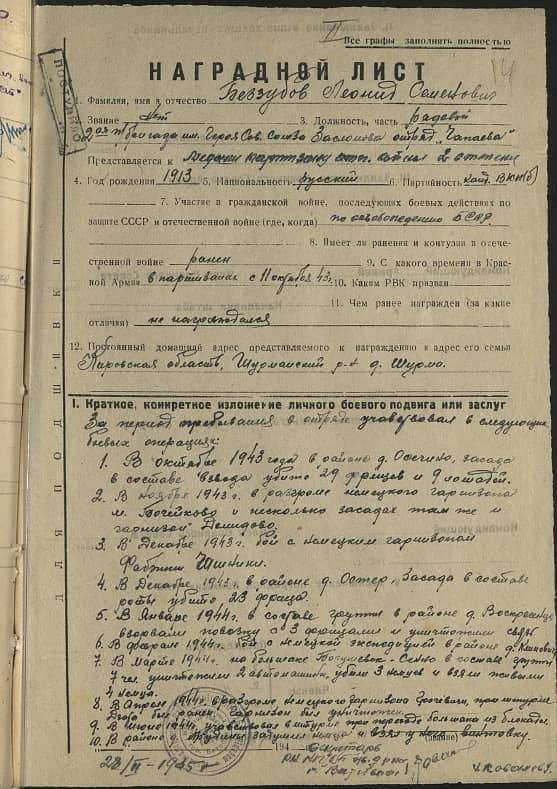 II
Все графы заполнять полностью
14
НАГРАДНОЙ ЛИСТ
1. Фамилия, имя и отчество Беззубов Леонид Семенович
Звание нет 3. Должность, часть рядовой
бригада им. Героя Сов. Союза Заслонова отряд "Чапаева"
Представляется к медали партизану отеч. войны 2 степени
4. Год рождения 1913 5. Национальность русский 6. Партийность канд. ВКП(б)
7. Участие в гражданской войне, последующих боевых действиях по
защите СССР и отечественной войне (где, когда) по освобождению БССР
8. Имеет ли ранения и контузии в отече-
ственной войне ранен 9. С какого времени в Крас-
ной Армии в партизанах с 11 октября 43 г. 10. Каким РВК призван
11. Чем ранее награжден (за какие
отличия) не награждался
12. Постоянный домашний адрес представляемого к награждению и адрес его семьи
Кировская область, Шурминский р-н д. Шурма.
ДЛЯ ПОДШИВКИ
I. Краткое, конкретное изложение личного боевого подвига или заслуг
За период пребывания в отряде участвовал в следующих
боевых операциях:
1. В октябре 1943 года в районе д. Осечино, засада
в составе взвода убито 29 фрицев и 9 лошадей.
2. В ноябре 1943 г. в разгроме немецкого гарнизона
м. Бочейково и несколько засадах там же и
гарнизон Демидово.
3. В Декабре 1943 г. бой с немецким гарнизоном
Фабрики
4. В Декабре 1943 г. в районе д. Остер, засада в составе
роты убито 23 фрица.
5. В Январе 1944 г. в составе группы в районе д.
взорвали повозку с 3 фрицами и уничтожили связь
6. В феврале 1944 г. бой с немецкой экспедицией в районе д.
7. В Марте 1944 г. на большаке Богушевск - Сенно в составе группы
7 чел. уничтожили 2 автомашины, убили 3 немцев и взяли живыми
4 немца.
8. В Апреле 1944 г. в разгроме немецкого гарнизона при штурме
был ранен, гарнизон был уничтожен.
9. В июне 1944 г. участвовал в штурме при переходе большака из блокады.
10. В районе д. немца и взял у него винтовку.
194 (звание)
22/II-1945 г.
Секретарь